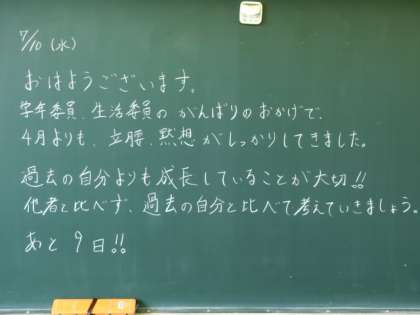 7/10 (水)
おはようございます。
学年委員、生活委員のがんばりのおかげで、
4月よりも、立腰、黙想がしっかりしてきました。
過去の自分よりも成長していることが大切!!
他者と比べず、過去の自分と比べて考えていきましょう。
あと9日!!